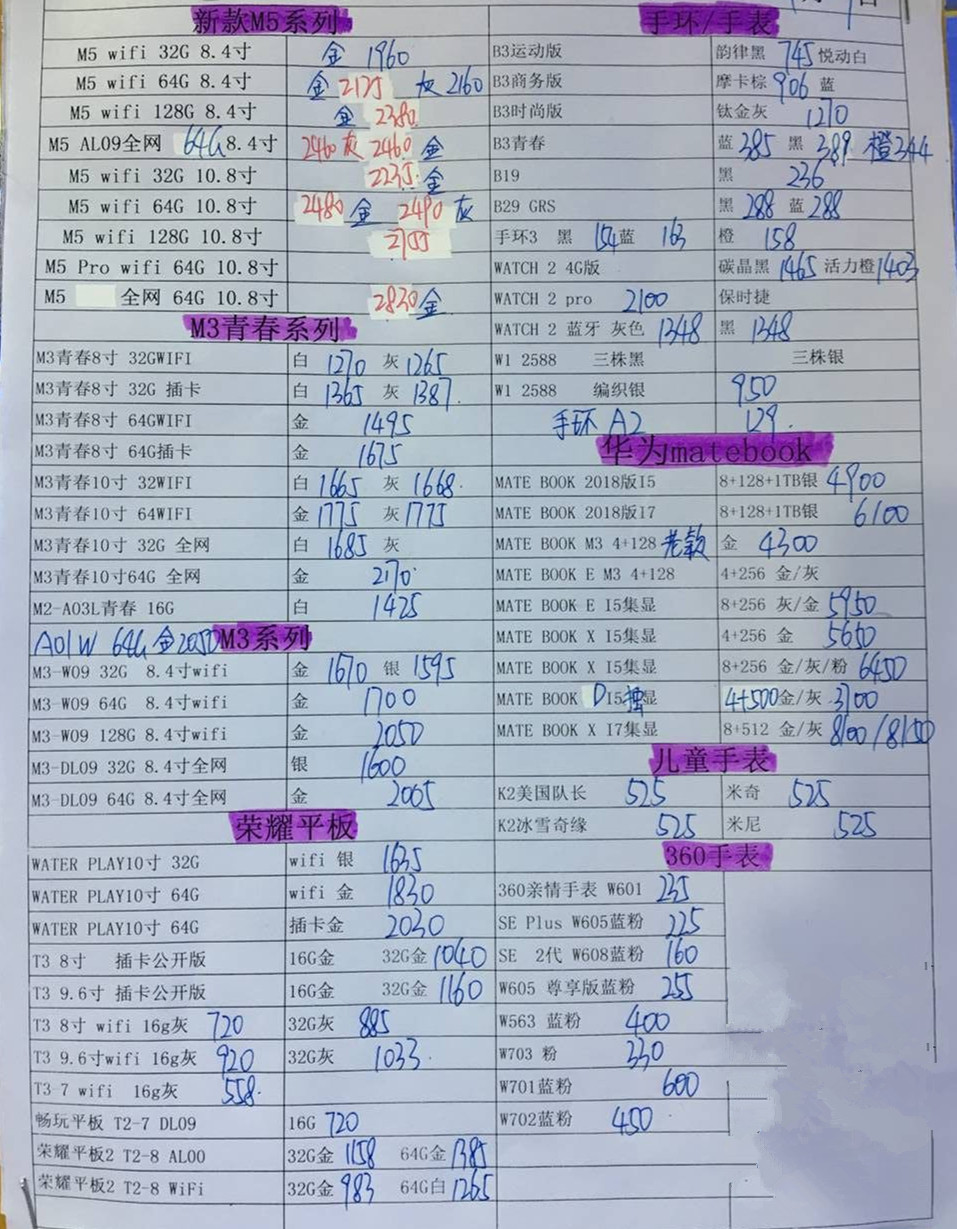 新款M5系列
M5 wifi 32G 8.4寸 金 1960
M5 wifi 64G 8.4寸 金 2175 灰 2160
M5 wifi 128G 8.4寸 金 2380
M5 AL09全网 64G 8.4寸 2460 灰 2460 金
M5 wifi 32G 10.8寸 2235 金
M5 wifi 64G 10.8寸 2480 金 2490 灰
M5 wifi 128G 10.8寸 2755
M5 Pro wifi 64G 10.8寸
M5 全网 64G 10.8寸 2830 金
M3青春系列
M3青春8寸 32GWIFI 白 1270 灰 1265
M3青春8寸 32G 插卡 白 1365 灰 1387
M3青春8寸 64GWIFI 金 1495
M3青春8寸 64G插卡 金 1675
M3青春10寸 32WIFI 白 1665 灰 1668
M3青春10寸 64WIFI 金 1775 灰 1775
M3青春10寸 32G 全网 白 1685 灰
M3青春10寸64G 全网 金 2170
M2-A03L青春 16G 白 1425
A01W 64G 金 2050 M3系列
M3-W09 32G 8.4寸wifi 金 1670 银 1595
M3-W09 64G 8.4寸wifi 金 1700
M3-W09 128G 8.4寸wifi 金 2050
M3-DL09 32G 8.4寸全网 银 1600
M3-DL09 64G 8.4寸全网 金 2065
荣耀平板
WATER PLAY10寸 32G wifi 银 1635
WATER PLAY10寸 64G wifi 金 1830
WATER PLAY10寸 64G 插卡金 2030
T3 8寸 插卡公开版 16G金 32G金 1040
T3 9.6寸 插卡公开版 16G金 32G金 1160
T3 8寸 wifi 16g灰 720 32G灰 885
T3 9.6寸wifi 16g灰 920 32G灰 1033
T3-7 wifi 16g灰 558
畅玩平板 T2-7 DL09 16G 720
荣耀平板2 T2-8 AL00 32G金 1158 64G金 1385
荣耀平板2 T2-8 WiFi 32G金 983 64G白 1265
手环/手表
B3运动版 韵律黑 745 悦动白
B3商务版 摩卡棕 906 蓝
B3时尚版 钛金灰 1270
B3青春 蓝 385 黑 389 橙 344
B19 黑 236
B29 GRS 黑 288 蓝 288
手环3 黑 154 蓝 163 橙 158
WATCH 2 4G版 碳晶黑 1465 活力橙 1403
WATCH 2 pro 2100 保时捷
WATCH 2 蓝牙 灰色 1348 黑 1348
W1 2588 三株黑 三株银
W1 2588 编织银 950
手环 A2 129
华为matebook
MATE BOOK 2018版I5 8+128+1TB银 4900
MATE BOOK 2018版I7 8+128+1TB银 6100
MATE BOOK M3 4+128 老款 金 4300
MATE BOOK E M3 4+128 4+256 金/灰
MATE BOOK E I5集显 8+256 灰/金 5950
MATE BOOK X I5集显 4+256 金 5650
MATE BOOK X I5集显 8+256 金/灰/粉 6450
MATE BOOK D I5 显 4+500 金/灰 3700
MATE BOOK X I7集显 8+512 金/灰 8100/8150
儿童手表
K2美国队长 525 米奇 525
K2冰雪奇缘 525 米尼 525
360手表
360亲情手表 W601 235
SE Plus W605蓝粉 225
SE 2代 W608蓝粉 160
W605 尊享版蓝粉 255
W563 蓝粉 400
W703 粉 330
W701蓝粉 600
W702蓝粉 450